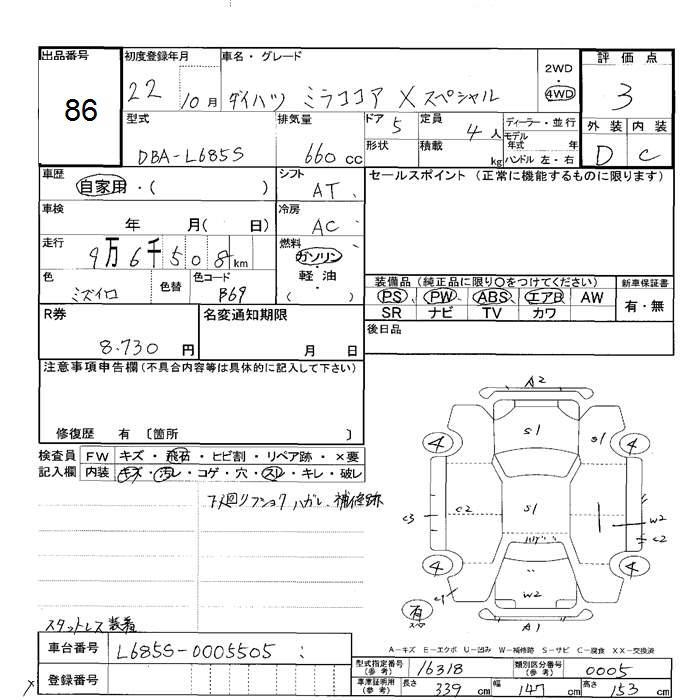 出品番号 初度登録年月 車名・グレード 2WD・4WD 評価点
86 22 10月 ダイハツ ミラココア X スペシャル 3
型式 排気量 ドア 5 定員 4人 ディーラー・並行 外装 内装
DBA-L685S 660 cc 形状 積載 kg モデル年式 年 ハンドル 左・右 D C
車歴 自家用・( ) シフト AT セールスポイント (正常に機能するものに限ります)
車検 年 月( 日) 冷房 AC
走行 9万6千508km 燃料 ガソリン・軽油 ( )
色 ミズイロ 色替 色コード B69
装備品 (純正品に限り〇をつけてください) 新車保証書
PS PW ABS エアB AW 有・無
SR ナビ TV カワ
R券 8.730 円 名変通知期限 月 日 後日品
注意事項申告欄 (不具合内容等は具体的に記入して下さい)
修復歴 有 〔箇所 〕
検査員 FW キズ・飛石・ヒビ割・リペア跡・×要
記入欄 内装 キズ・汚レ・コゲ・穴・スレ・キレ・破レ
下廻リ ハガレ、補修跡
A2
4 S1 S1 4
C3 C2 S1 W2
C2
ハゲ
4 4
C1 W2
有
スペア A1
スタットレス装着
A-キズ E-エクボ U-凹み W-補修跡 S-サビ C-腐食 XX-交換済
車台番号 L685S-0005505
登録番号
型式指定番号 (参考) 16318 類別区分番号 (参考) 0005
車庫証明用 (参考) 長さ 339 cm 幅 147 cm 高さ 153 cm